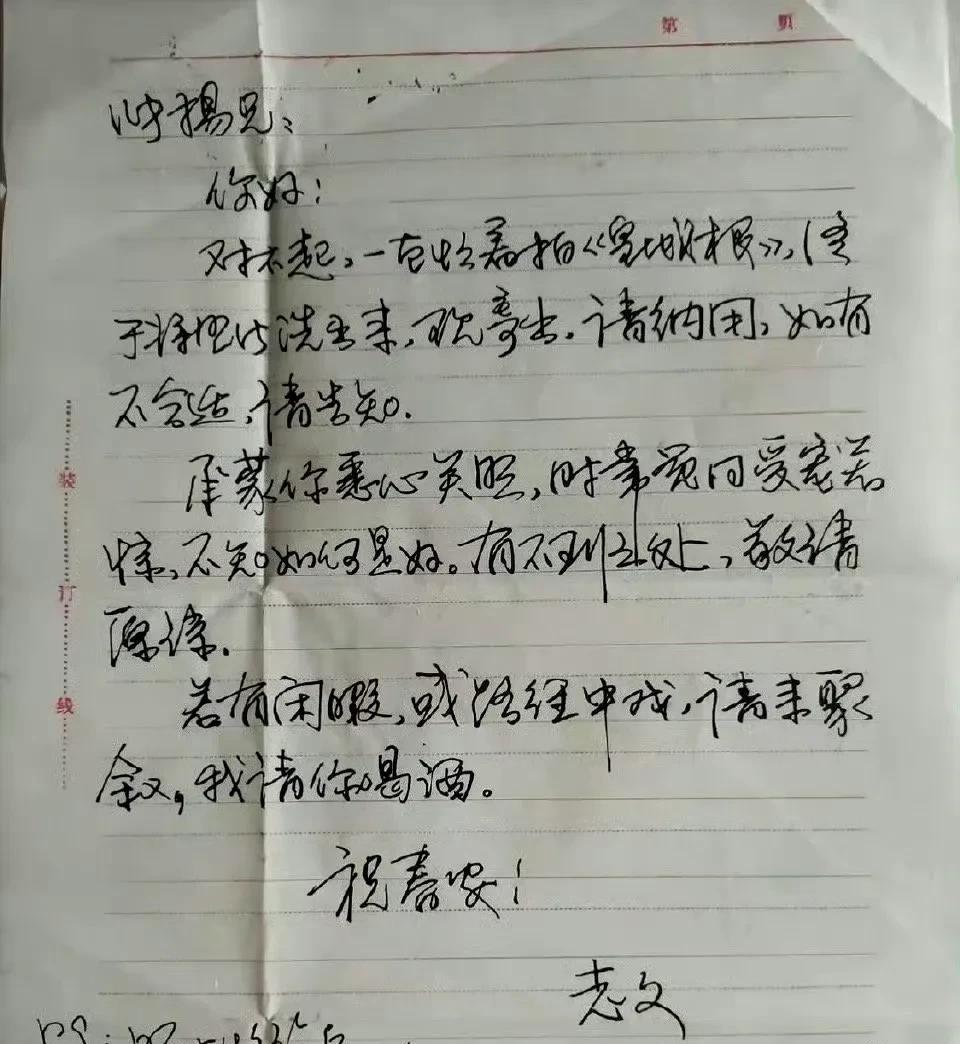 第 页
扬兄：
你好！
对不起，一直忙着拍《皇城根》，终
于将照片洗出来，现寄出。请纳用，如有
不合适，请告知.
承蒙你悉心关照，时常觉问受宠若
惊，不知如何是好。有不到之处，敬请
原谅.
若有闲暇，或路经中戏，请来聚
叙，我请你喝酒。
祝春安！
志文
PS:
装
订
线